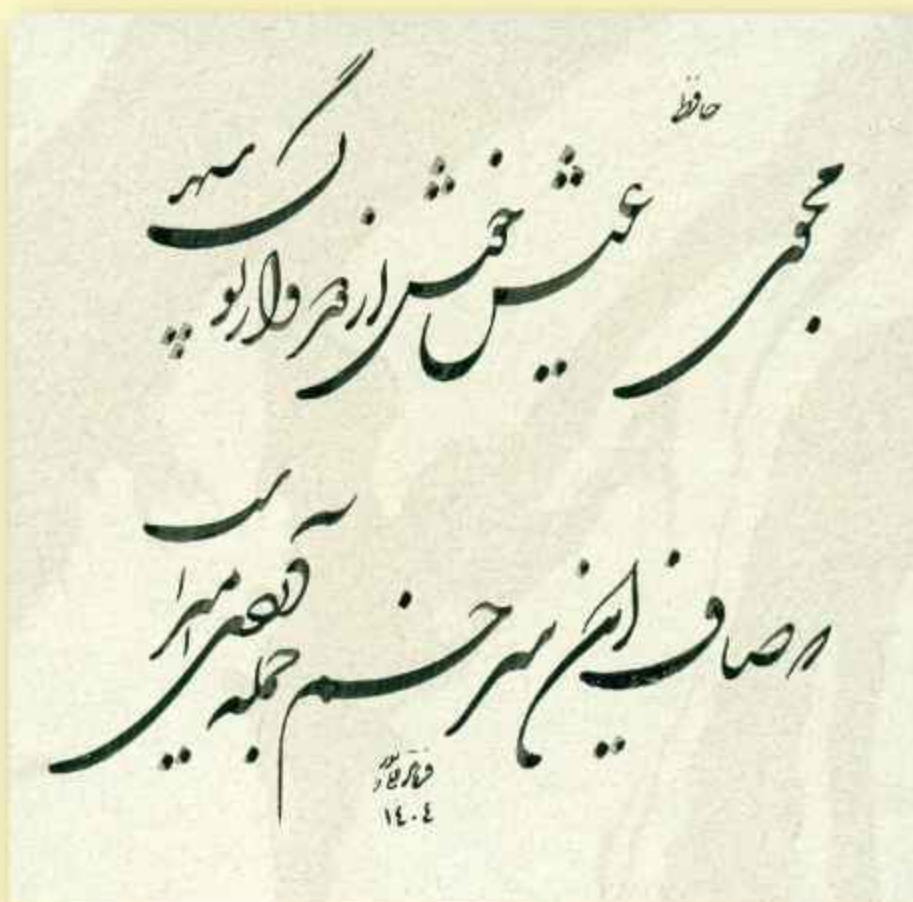 حافظ
مجوی عیش خوش از دور واژگون سپهر
که صاف این سر خم جمله دردی آمیز است
۱۴۰۴